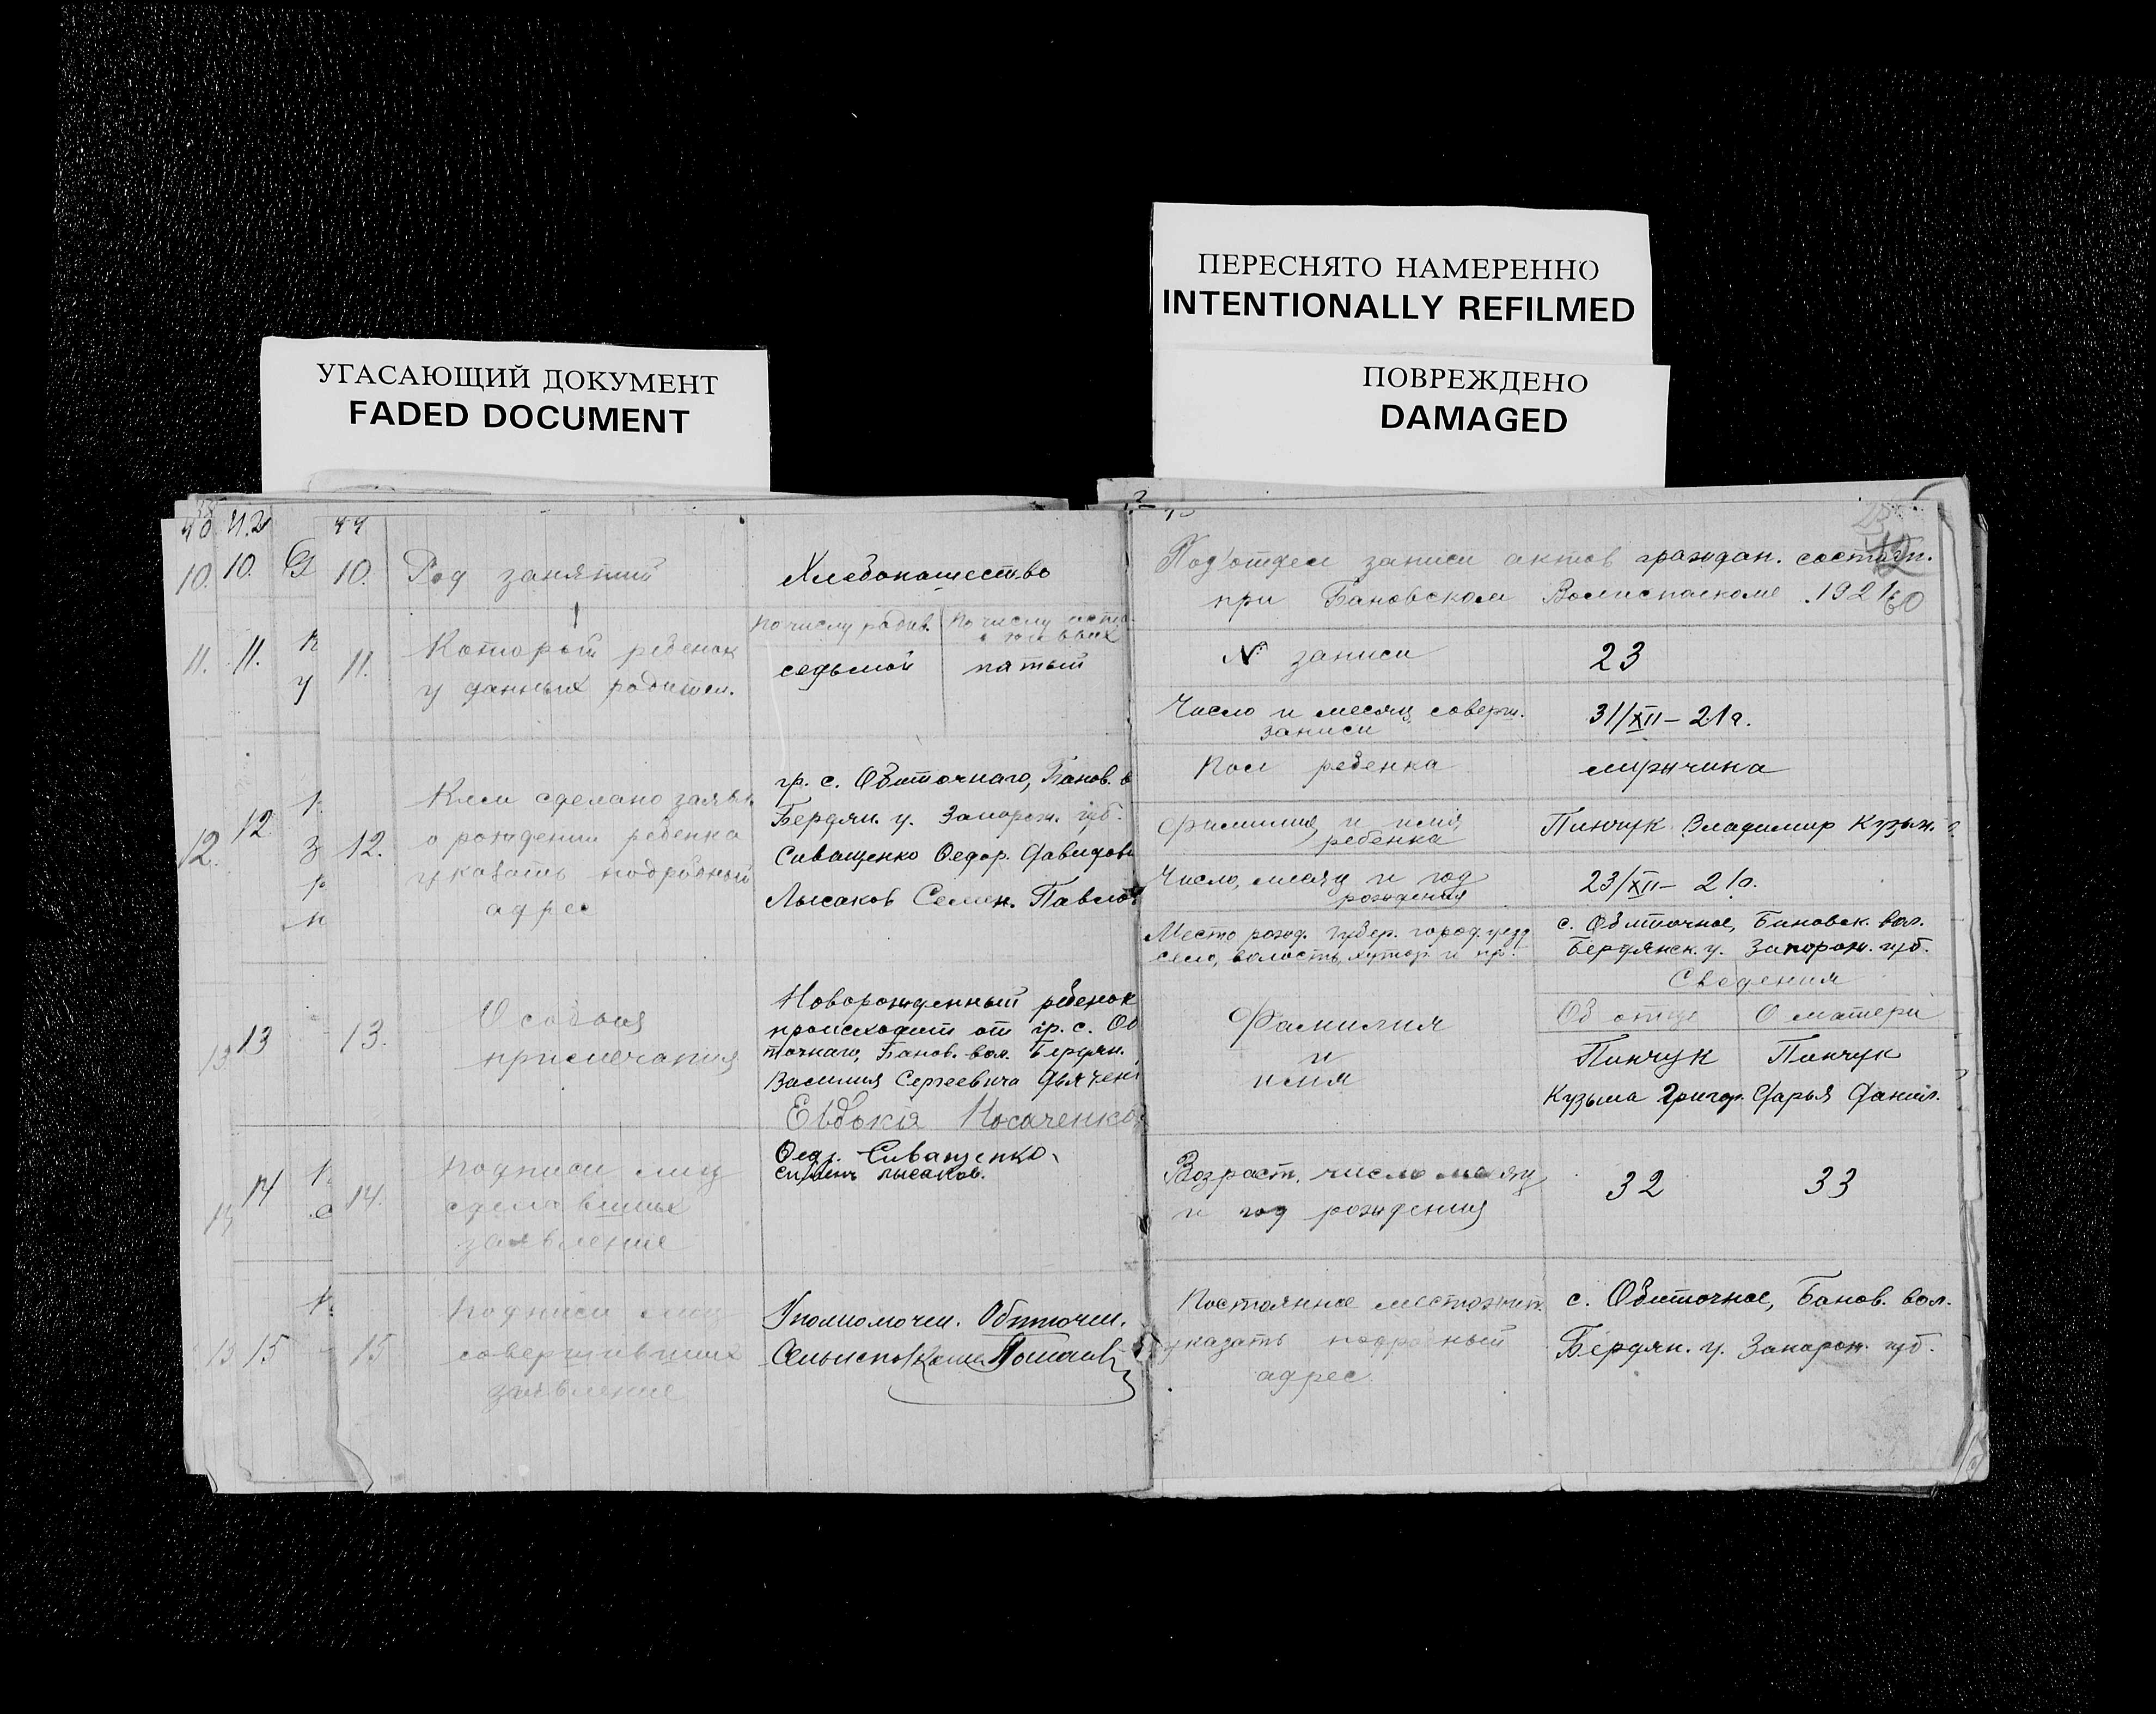 ПЕРЕСНЯТО НАМЕРЕННО
INTENTIONALLY REFILMED
УГАСАЮЩИЙ ДОКУМЕНТ
FADED DOCUMENT
ПОВРЕЖДЕНО
DAMAGED
10. 10. 10. Род занятий Хлебопашество
По числу родив. По числу
11. 11. 11. Который ребенок
у данных родител. седьмой пятый
гр. с. Обиточнаго, Банов. в
12. 12. 12. Кем сделано заявл.
Бердян. у. Запорож. губ.
о рождении ребенка
Сиващенко Федор. Давидов
указать подробный
адрес Лысаков Семен. Павлов
Новорожденный ребенок
13 13 13. Особыя примечания
происходит от гр. с. Об
точнаго, Банов. вол. Бердян.
Василия Сергеевича Дьячен
Евдокия Носаченко
14 14 14. Подписи лиц
сделавших
заявление
Сиващенко
лысаков.
15 15 15 Подписи лиц
совершивших
заявление
Уполномочен. Обиточн.
Под'отдел записи актов граждан. состоян.
при Бановском Волисполкоме 1921
60
№ записи 23
Число и месяц соверш.
записи 31/XII-21г.
Пол ребенка мужчина
Фамилия и имя
ребенка Пинчук Владимир Кузьм.
Число, месяц и год
рождения 23/XII- 21г.
Место рожд. губер. город. уезд
село, волость, хутор и пр.
с. Обиточное, Бановск. вол.
Бердянск. у. Запорож. губ.
Сведения
Об отце О матери
Фамилия
и
имя
Пинчук Пинчук
Кузьма Григор. Дарья Данил.
Возраст, число месяц
и год рождения 32 33
Постоянное местожит.
указать подробный
адрес
с. Обиточное, Банов. вол.
Бердян. у. Запорож. губ.